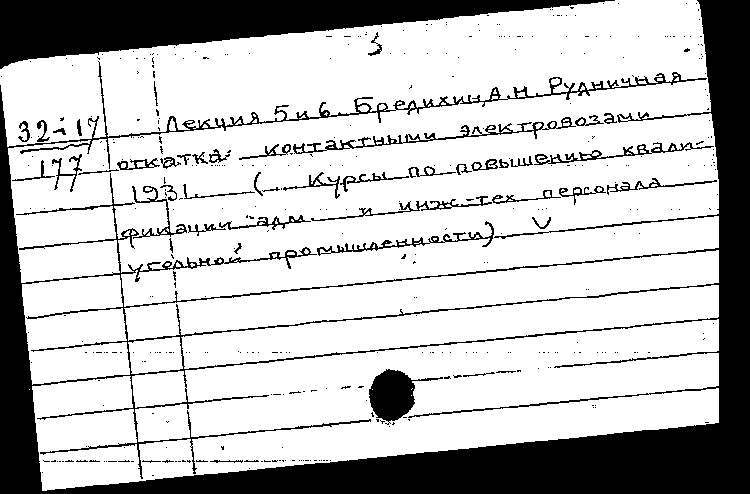 3
32-17
177
Лекция 5 и 6. Бредихин, А.Н. Рудничная
откатка контактными электровозами.
1931. (Курсы по повышению квали-
фикации адм. и инж.-тех персонала
угольной промышленности). V